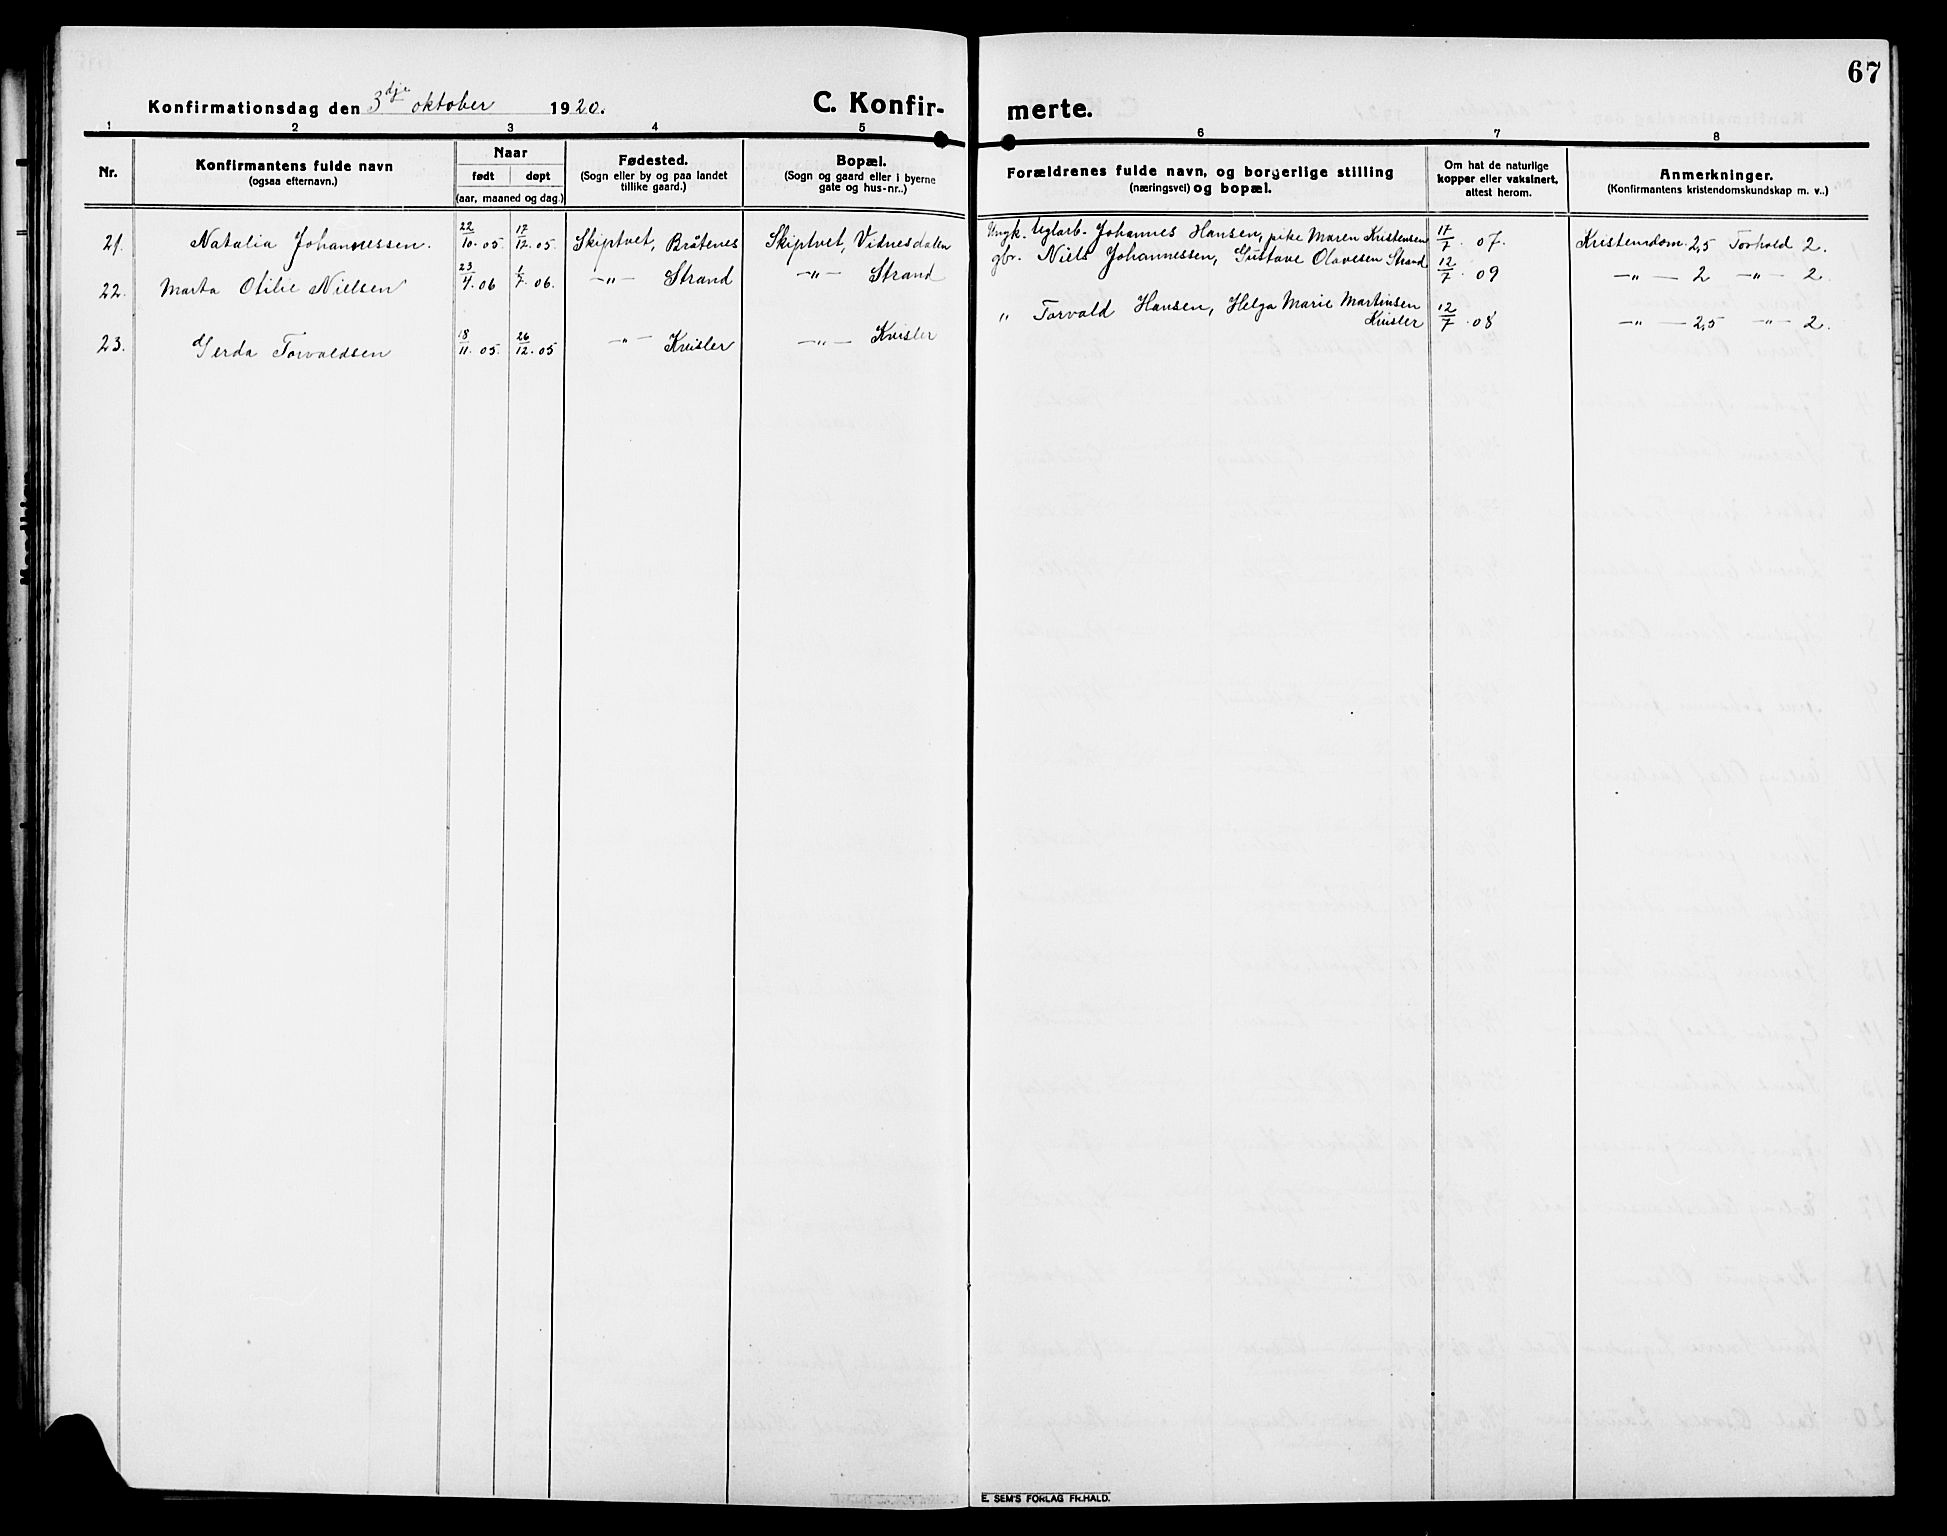 67
Konfirmationsdag den 3dje oktober 1920.
C. Konfir-
merte.
1 2 3 4 5 6 7 8
Nr.
Konfirmantens fulde navn
(ogsaa efternavn.)
Naar
født døpt
(aar, maaned og dag.)
Fødested.
(Sogn eller by og paa landet
tillike gaard.)
Bopæl.
(Sogn og gaard eller i byerne
gate og hus-nr..)
Forældrenes fulde navn, og borgerlige stilling
(næringsvei) og bopæl.
Om hat de naturlige
kopper eller vaksinert,
attest herom.
Anmerkninger.
(Konfirmantens kristendomskundskap m. v..)
21. Natalia Johannessen. 22/10. 05 17/12. 05 Skiptvet, Bråtenes Skiptvet, Vidnesdalen Ungk. tglarb. Johannes Hansen, pike Maren Kristensen 17/7. 07. Kristendom 2,5 Forhold 2.
22. Marta Otilie Nielsen 23/4. 06 1/7. 06. —"— Strand —"— Strand gbr. Niels Johannessen, Gustave Olavesen Strand 12/7. 09 —"— 2 —"— 2.
23. Gerda Torvaldsen 18/11. 05 26/12. 05 —"— Kvisler —"— Kvisler " Torvald Hansen, Helga Marie Martinsen
Kvisler 12/7. 08 —"— 2,5 —"— 2.
E. SEM'S FORLAG FR.HALD.